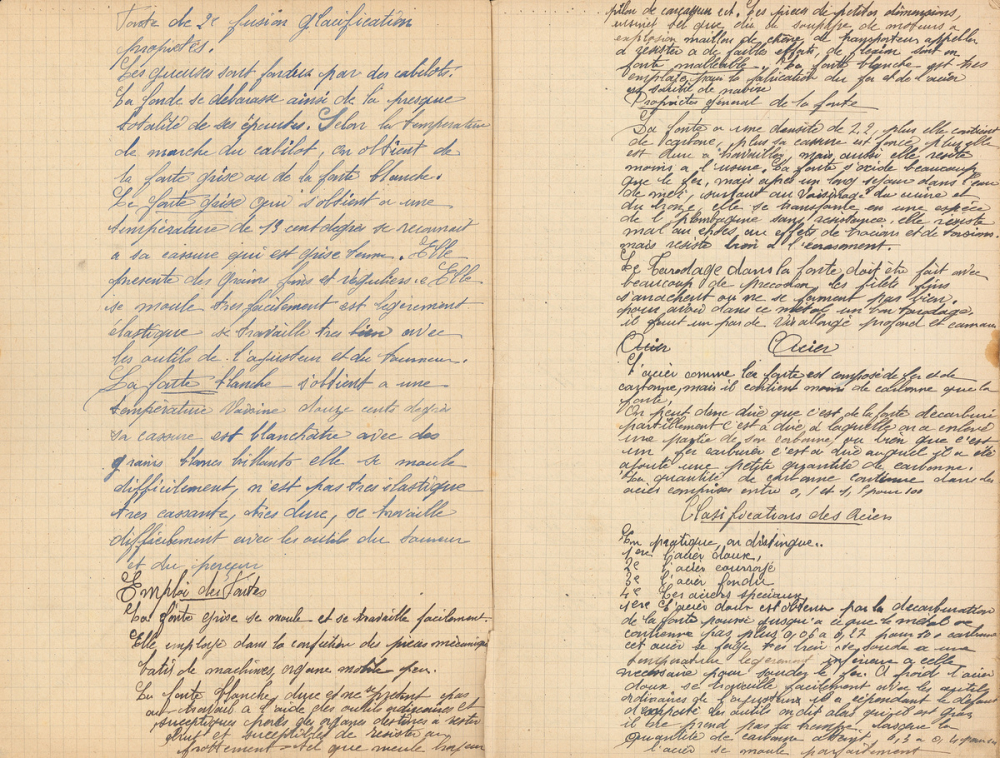 Fonte de 2e fusion glacification
propriétés.
Les gueuses sont fondues par des cabilots.
La fonde se débarasse ainsi de la presque
totalité de ses épurites. Selon la température
de marche du cabilot, on obtient de
la fonte grise ou de la fonte blanche.
La fonte grise qui s'obtient a une
température de 13 cent degrés se reconnait
a sa cassure qui est grise terne. Elle
presente des grains fins et réguliers. Elle
se moule tres facilement est legerement
elastique se travaille tres bien avec
les outils de l'ajusteur et du tourneur.
La fonte blanche s'obtient a une
température voisine douze cents degrés
sa cassure est blanchâtre avec des
grains blancs brillants elle se moule
difficilement, n'est pas tres elastique
tres cassante, tres dure, se travaille
difficilement avec les outils du tourneur
et du perceur
Emploi des Fontes
La fonte grise se moule et se travaille facilement.
Elle employé dans la confection des pièces mécanique
batis de machines, organe mobile peu.
La fonte blanche dure et ne se pretent pas
au travail a l'aide des outils ordinaires et
susceptibles de resister au
frottement tel que meule broyeur
pilon de concasseur ect. Les pieces de petites dimensions,
explosion maillon de chaine de transporteur appeller
a resister a de faibles efforts de flexion sont en
fonte malleable. La fonte blanche est tres
employé pour la fabrication du fer et de l'acier
Propriétés general de la fonte
La fonte a une densité de 7,2, plus elle contient
de carbone, plus sa cassure est foncé, plus elle
est dure a travailler, mais aussi elle resiste
moins a l'usure. La fonte s'oxide beaucoup
que le fer, mais apres un long sejour dans l'eau
de mer, surtout au voisinage du cuivre et
du bronze, elle se transforme en une espèce
de plombagine sans resistance. elle resiste
mal au chocs, au effets de traction et de torsion.
mais resiste bien a l'ecrasement.
Le Tarodage dans la fonte doit être fait avec
beaucoup de precotion, les filets fins
s'arrachent ou ne se forment pas bien.
pour avoir dans ce metal un bon tarodage
il faut un pas de vis allongé profond et
Acier Acier
L'acier comme la fonte est composé de fer et de
carbonne, mais il contient moins de carbonne que la
fonte.
On peut donc dire que c'est de la fonte decarburé
partiellement c'est a dire a laquelle on a enlevé
une partie de son carbonne ou bien que c'est
un fer carburer c'est a dire auquel il a été
ajouté une petite quantité de carbonne.
La quantité de carbonne contenue dans les
aciers comprises entre 0,1 et 1,5 pour 100
Clasifications des Aciers
En pratique, on distingue..
1ere l'acier doux,
2e l'acier courroyé
3e l'acier fondu
4e Les aciers speciaux
1ere L'acier doux est obtenu par la decarburation
de la fonte poussé jusqu'a ce que le metal ne
contienne pas plus 0,05 a 0,25 pour 100 carbone
cet acier se forge tres bien se soude a une
temperature legerement inferieure a celle
necessaire pour souder le fer. A froid l'acier
doux se travaille facilement avec les outils
ordinaires de l'ajusteur il a cependant le defaut
les outils on dit alors qu'il est gras,
il ne prend pas la trempe lorsque la
quantité de carbonne atteint 0,3 a 0,4 pour
l'acier se moule parfaitement